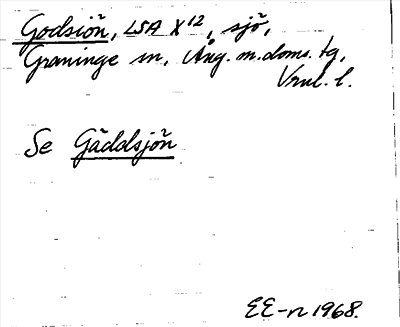 Godsiön, LSA X¹², sjö,
Graninge sn, Ång. m. doms. tg,
Vrnl. l.
Se Gäddsjön
EE-n 1968.